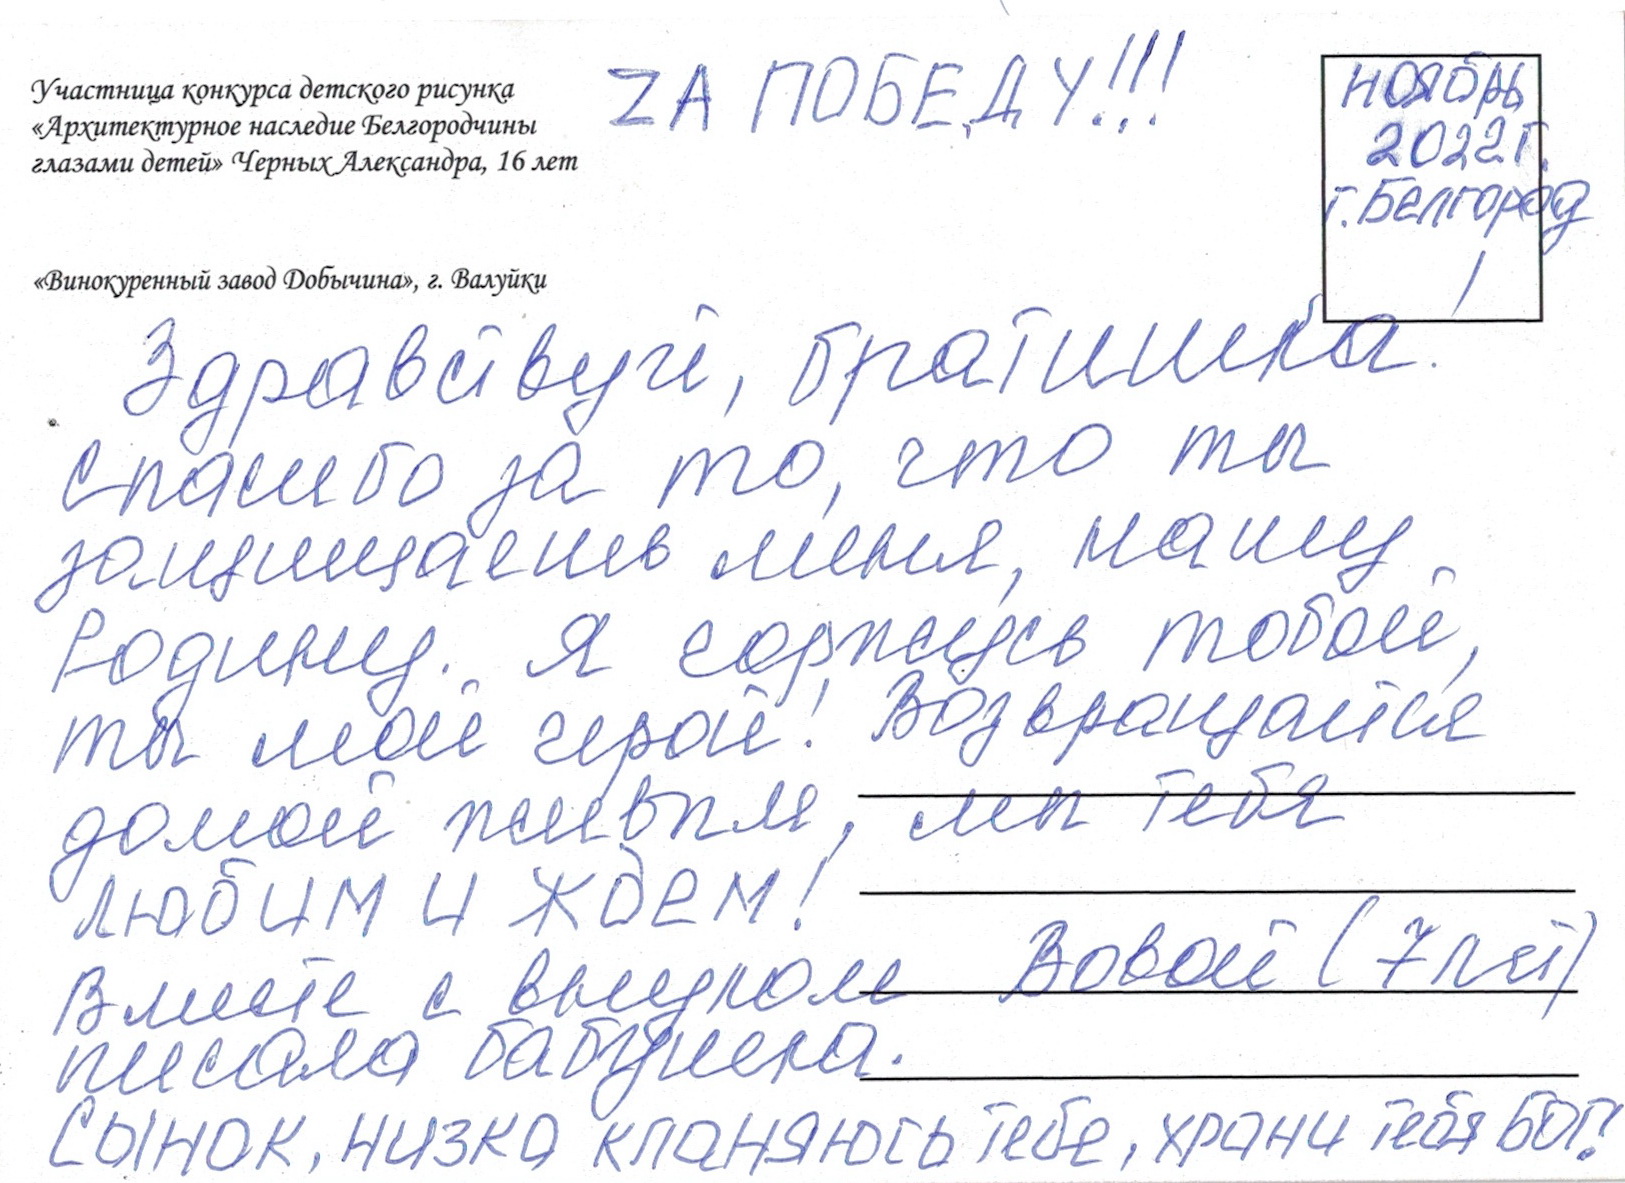 Участница конкурса детского рисунка
«Архитектурное наследие Белгородчины
глазами детей» Черных Александра, 16 лет
«Винокуренный завод Добычина», г. Валуйки
ZА ПОБЕДУ!!!
ноябрь
2022г.
г. Белгород
Здравствуй, братишка!
Спасибо за то, что ты
защищаешь меня, нашу
Родину. Я горжусь тобой,
ты мой герой! Возвращайся
домой живым, мы тебя
любим и ждем!
Вместе с внуком Вовой (7 лет)
писала бабушка.
Сынок, низко кланяюсь тебе, храни тебя Бог!